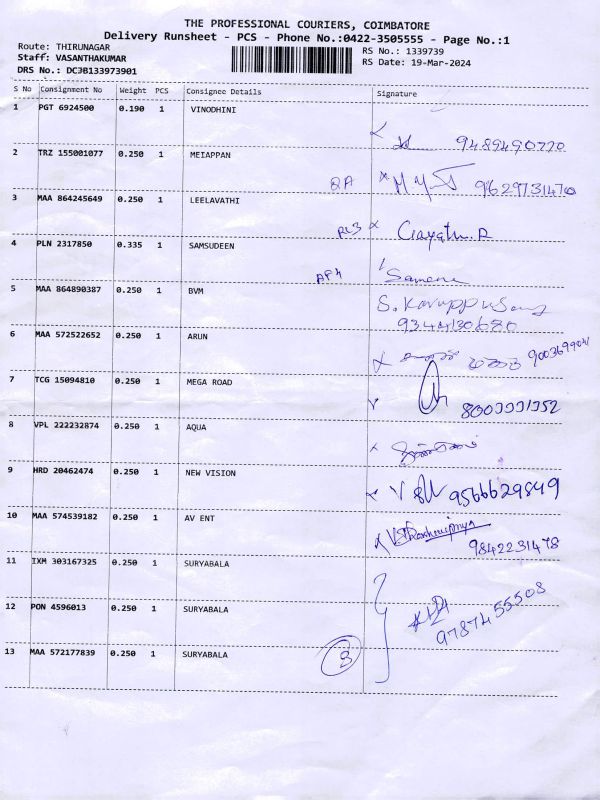 THE PROFESSIONAL COURIERS, COIMBATORE
Delivery Runsheet - PCS - Phone No.:0422-3505555 - Page No.:1
Route: THIRUNAGAR
Staff: VASANTHAKUMAR
DRS No.: DCJB133973901
RS No.: 1339739
RS Date: 19-Mar-2024
S No Consignment No Weight PCS Consignee Details Signature
1 PGT 6924500 0.190 1 VINODHINI
9489490770
2 TRZ 155001077 0.250 1 MEIAPPAN
9629731470
3 MAA 864245649 0.250 1 LEELAVATHI
Gayathri.R
4 PLN 2317850 0.335 1 SAMSUDEEN
5 MAA 864890387 0.250 1 BVM
S. Karuppusamy
9344130680
6 MAA 572522652 0.250 1 ARUN
7 TCG 15094810 0.250 1 MEGA ROAD
8 VPL 222232874 0.250 1 AQUA
9 HRD 20462474 0.250 1 NEW VISION
9566629849
10 MAA 574539182 0.250 1 AV ENT
9842231478
11 IXM 303167325 0.250 1 SURYABALA
12 PON 4596013 0.250 1 SURYABALA
9787455508
13 MAA 572177839 0.250 1 SURYABALA
3